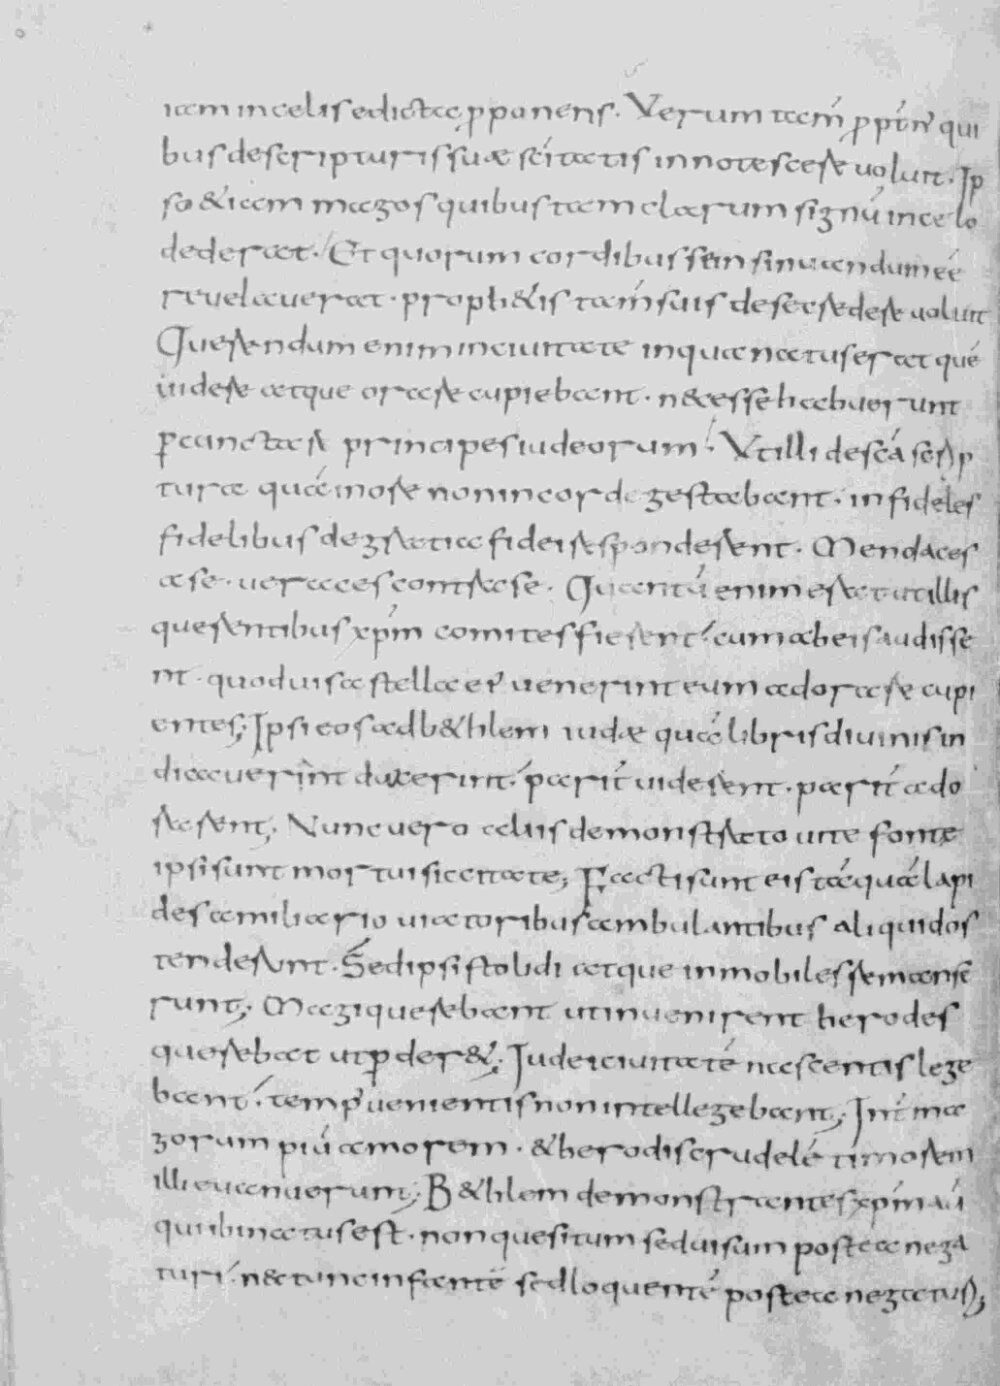 iam in celis edicta p̄ponens. Verum tam̄ ꝓpt̄ qui
bus de scripturis suæ sc̄itatis innotescere uoluit. Ip
so & iam magos quibus tam clarum signū in celo
dederat. Et quorum cordibus se in sinuandum eē
reuelauerat. proph&is tam̄ suis de se credere uoluit
Querendum enim in ciuitate in qua natus erat quē
uidere atque orare cupiebant. necesse habuerunt
ꝑcunctare principes iudeorum. Ut illi de sc̄a scrip
tura quā in ore non in corde gestabant. infideles
fidelibus de gratia fidei responderent. Mendaces
a se. ueraces contra se. Quantū enim erat ut illis
querentibus xp̄m comites fierent. cum ab eis audisse
nt. quod uisa stella ei' uenerint eum adorare cupi
entes; Ipsi eos ad b&hlem iudæ quā libris diuinis in
dicauerint duxerint. parit̄ uiderent. parit̄ ado
rarent; Nunc uero aliis demonstrato uite fonte
ipsi sunt mortui siccitate; Facti sunt eis tāquā lapi
des a miliario uiatoribus ambulantibus aliquid os
tenderunt. Sed ipsi stolidi atque inmobiles remanse
runt; Magi querebant ut inuenirent herodes
querebat ut ꝑder&; Iudei ciuitatē nascentis lege
bant. temp' uenientis non intellegebant; Int̄ ma
gorum piū amorem. & herodis crudelē timorem
illi euanuerunt; B&hlem demonstrantes xp̄m aū
qui ibi natus est. non quesitum sed uisum postea nega
turi. n& tunc infantē sed loquentē postea negaturi;